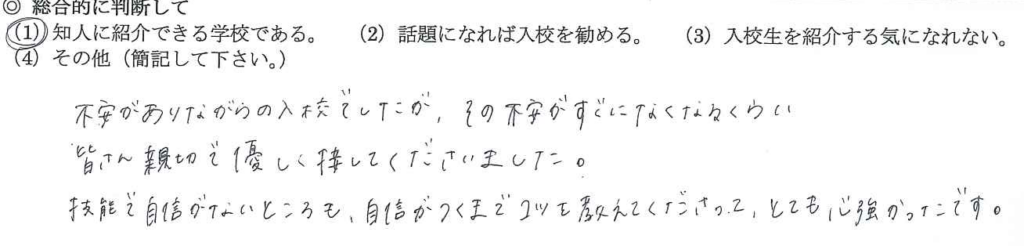 ◎ 総合的に判断して
(1) 知人に紹介できる学校である。 (2) 話題になれば入校を勧める。 (3) 入校生を紹介する気になれない。
(4) その他（簡記して下さい。）
不安がありながらの入校でしたが、その不安がすぐになくなるくらい
皆さん親切で優しく接してくださいました。
技能で自信がないところも、自信がつくまでコツを教えてくださって、とても心強かったです。